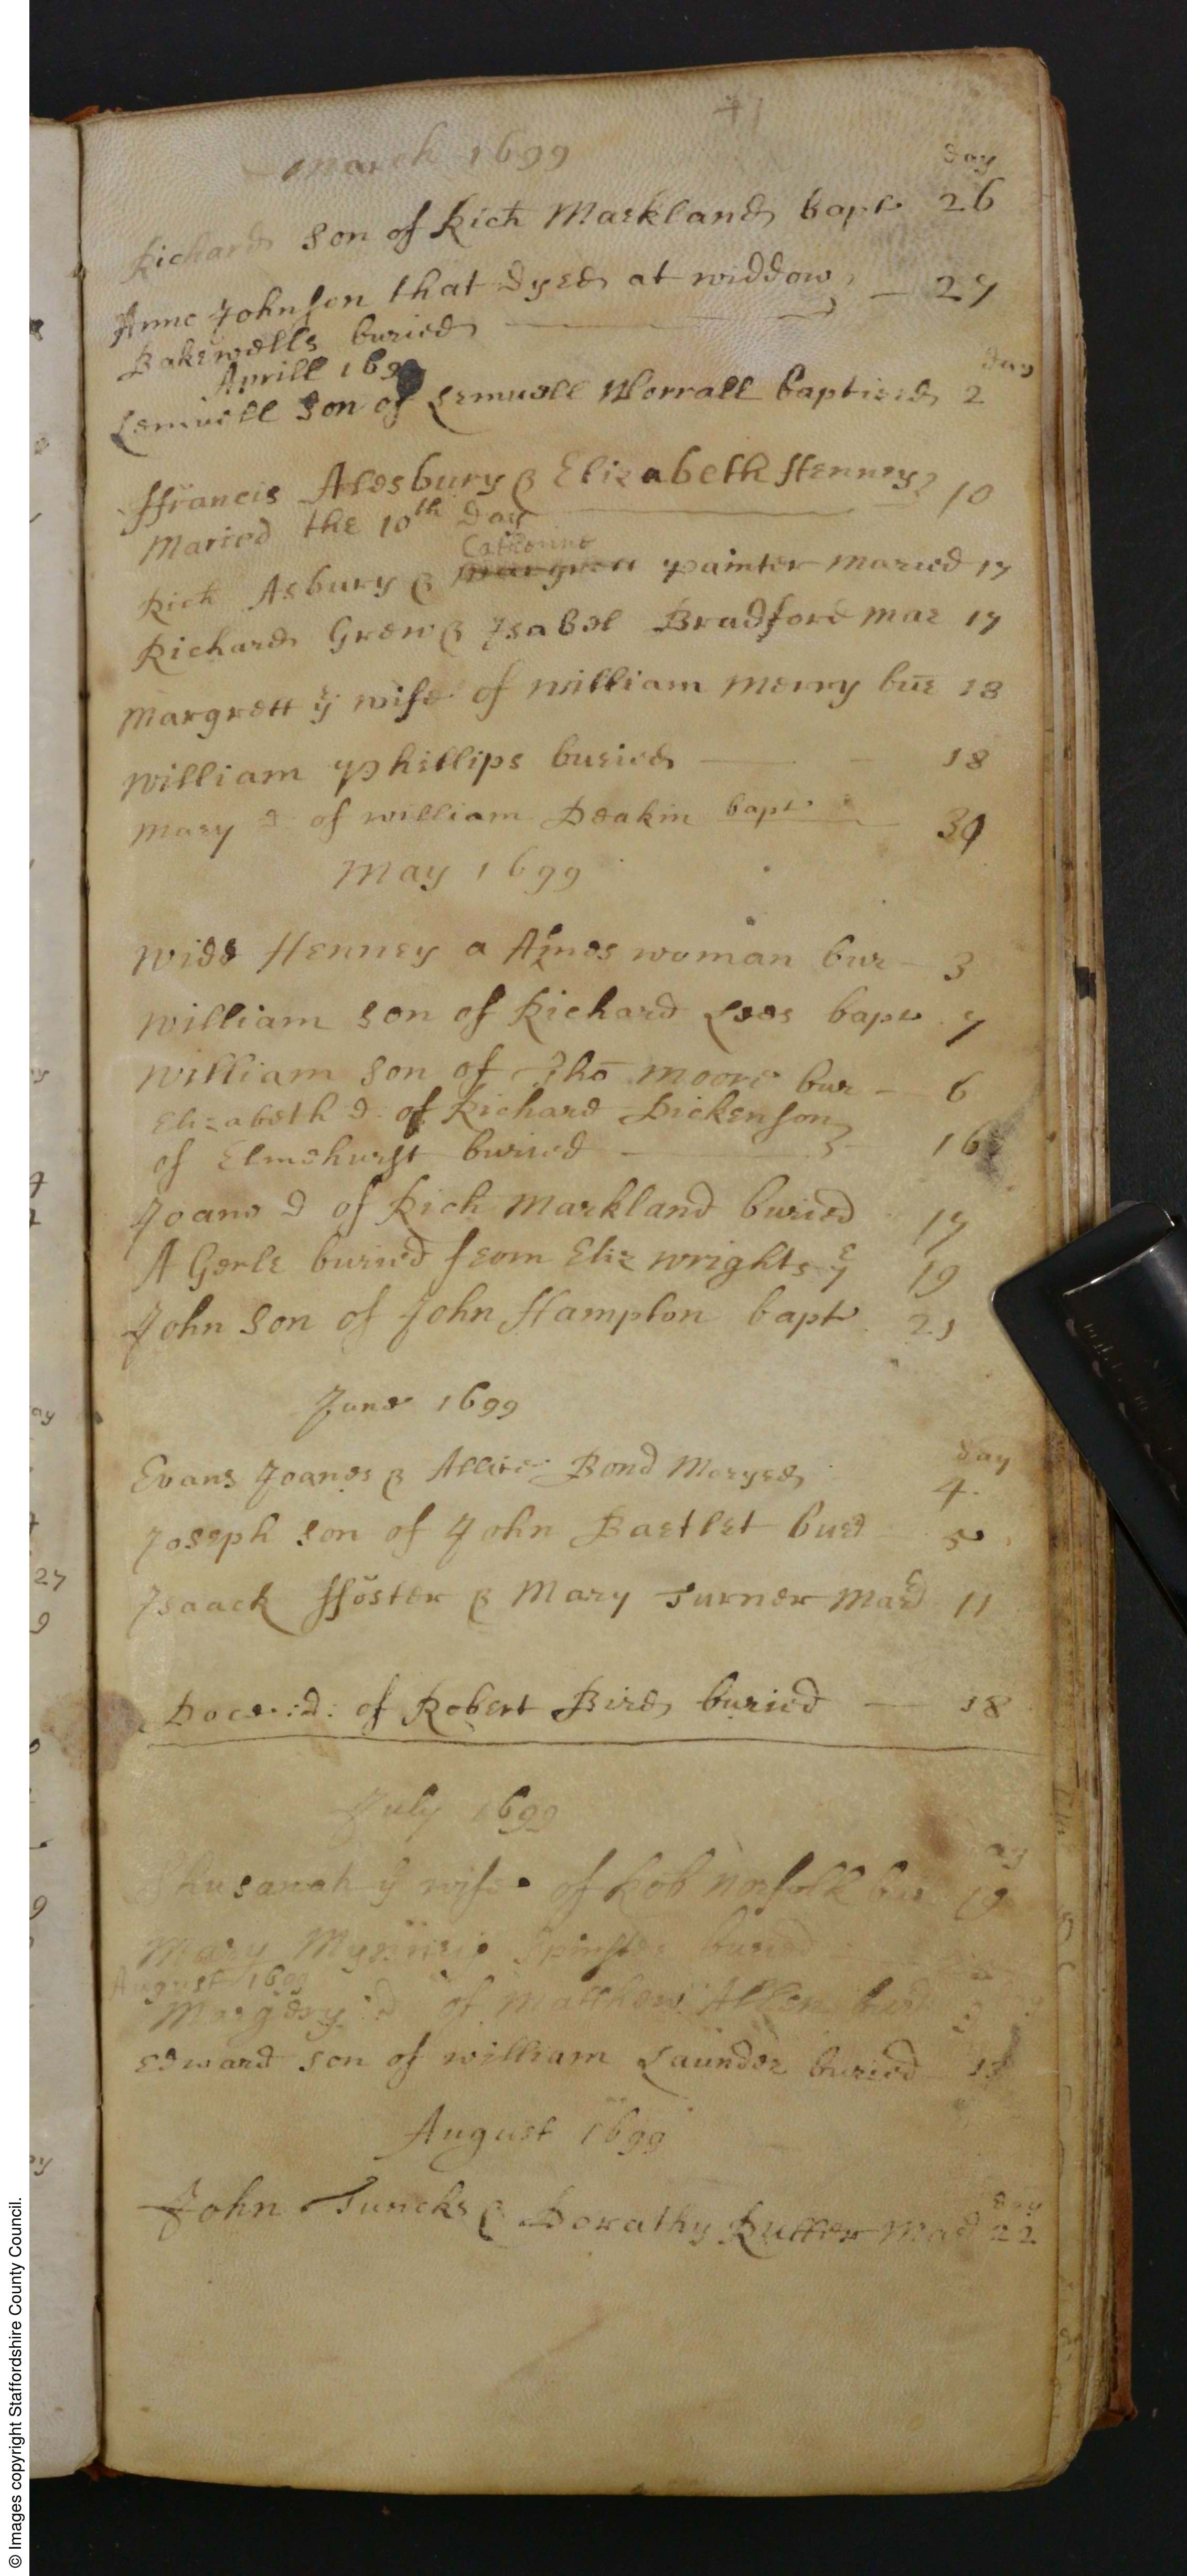 41
March 1699
day
Richard son of Rich Markland bapt 26
Anne Johnson that dyed at widdow 27
Bakewells buried
Aprill 1699
day
Lemuell son of Lemuell Worrall baptized 2
ffrancis Alesbury & Elizabeth Henney 10
Maried the 10th day
Catherine
Rich Asbury & Margrett painter maried 17
Richard Grew & Isabel Bradford mar 17
Margrett ye wife of William Merry bur 18
William Phillips buried 18
Mary d of william Deakin bapt 30
May 1699
Widd Henney a Almes woman bur 3
William son of Richard Lees bapt 7
William son of Tho moore bur 6
Elizabeth d. of Richard Dickenson
of Elmehurst buried 16
Joane d of Rich Markland buried 17
A Gerle buried from Eliz wrights ye 19
John son of John Hampton bapt 21
June 1699
day
Evans Joanes & Allice Bond Maryed 4
Joseph son of John Bartlet burd 5
Isaack ffoster & Mary Turner Mard 11
Doce :d: of Robert Bird buried 18
July 1699
ay
Shusanah ye wife of Rob Norfolk bur 19
Mary spinster buried
August 1699
Margery d of Matthew Allen burd
Edward son of william Launder buried 13
August 1699
day
John Tuncks & Dorathy Rutter Mard 22
© Images copyright Staffordshire County Council.